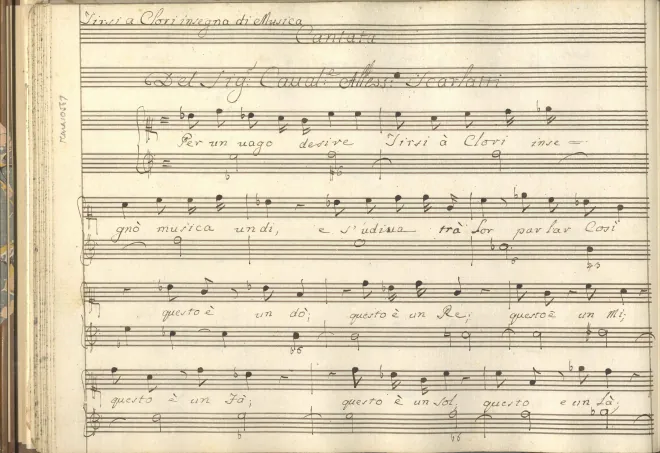 Tirsi à Clori insegna di Musica
Cantata
Del Sig.r Caual.re Aless.o Scarlatti
Per un uago desire Tirsi à Clori inse=
gnò musica un dì, e s'udiua trà lor parlar Così
questo è un dò; questo è un Re; questo è un Mi;
questo è un Fà; questo è un Sol; questo e un Là;